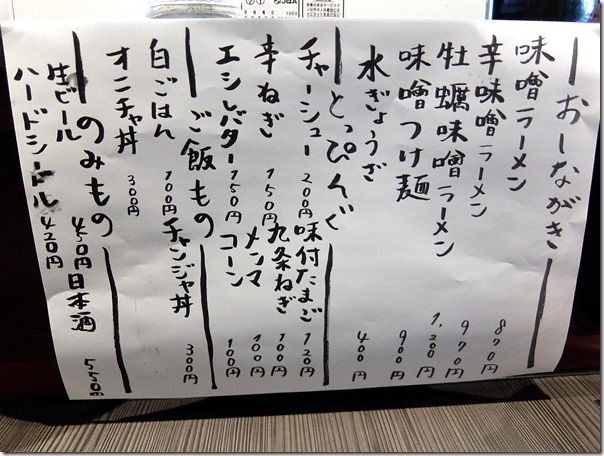 おしながき
味噌ラーメン 870円
辛味噌ラーメン 970円
牡蠣味噌ラーメン 1,200円
味噌つけ麺 900円
水ぎょうざ 400円
とっぴんぐ
チャーシュー 200円 味付たまご 120円
辛ねぎ 150円 九条ねぎ 100円
メンマ 100円
エシレバター 150円 コーン 100円
ご飯もの
白ごはん 100円 チャンジャ丼 300円
オニチャ丼 300円
のみもの
生ビール 450円 日本酒 550円
ハードシードル 420円